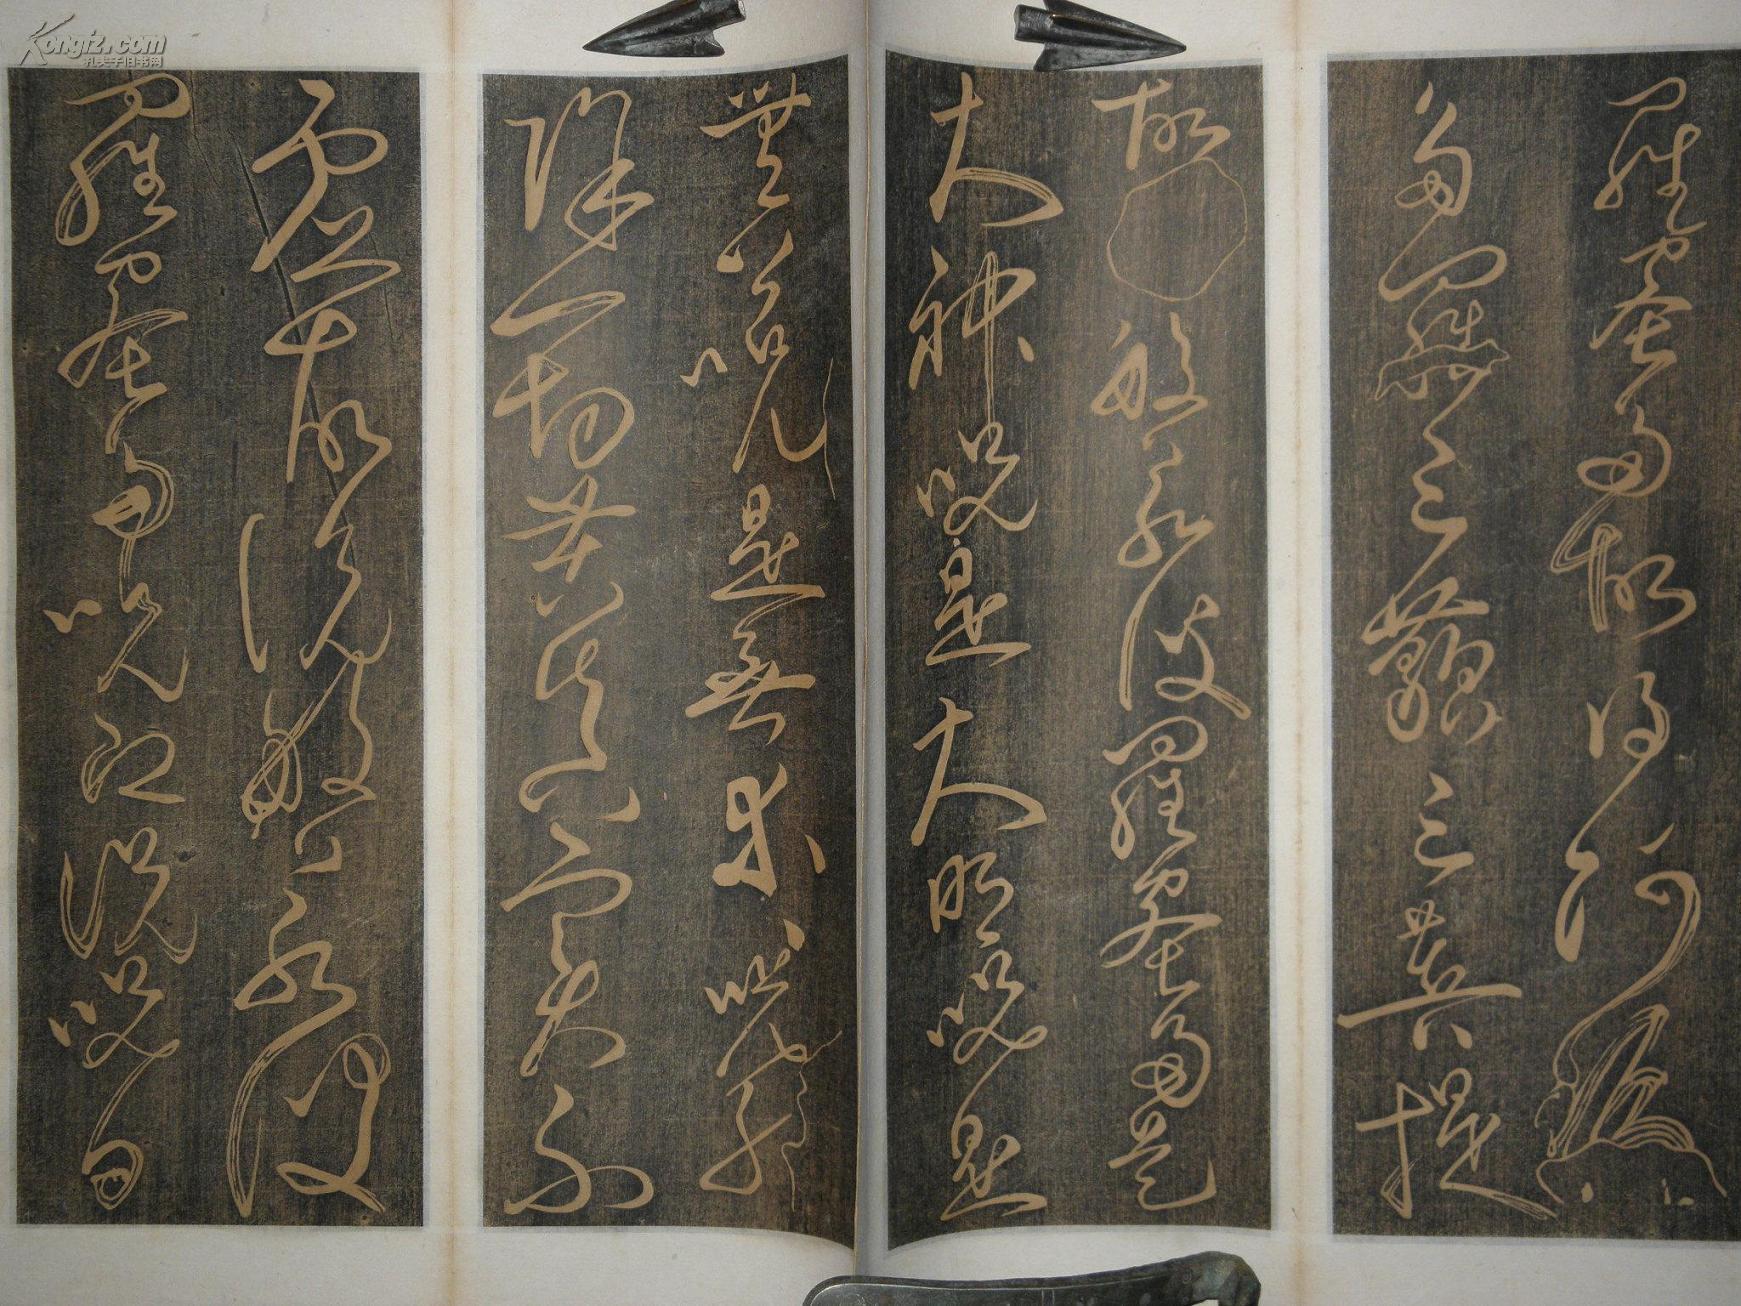 羅蜜多故得阿耨
多羅三藐三菩提
故般若波羅蜜多是
大神咒是大明咒是
無上咒是無等等咒能
除一切苦真實不
虛故說般若波
羅蜜多咒即說咒曰
Kongfz.com
孔夫子旧书网